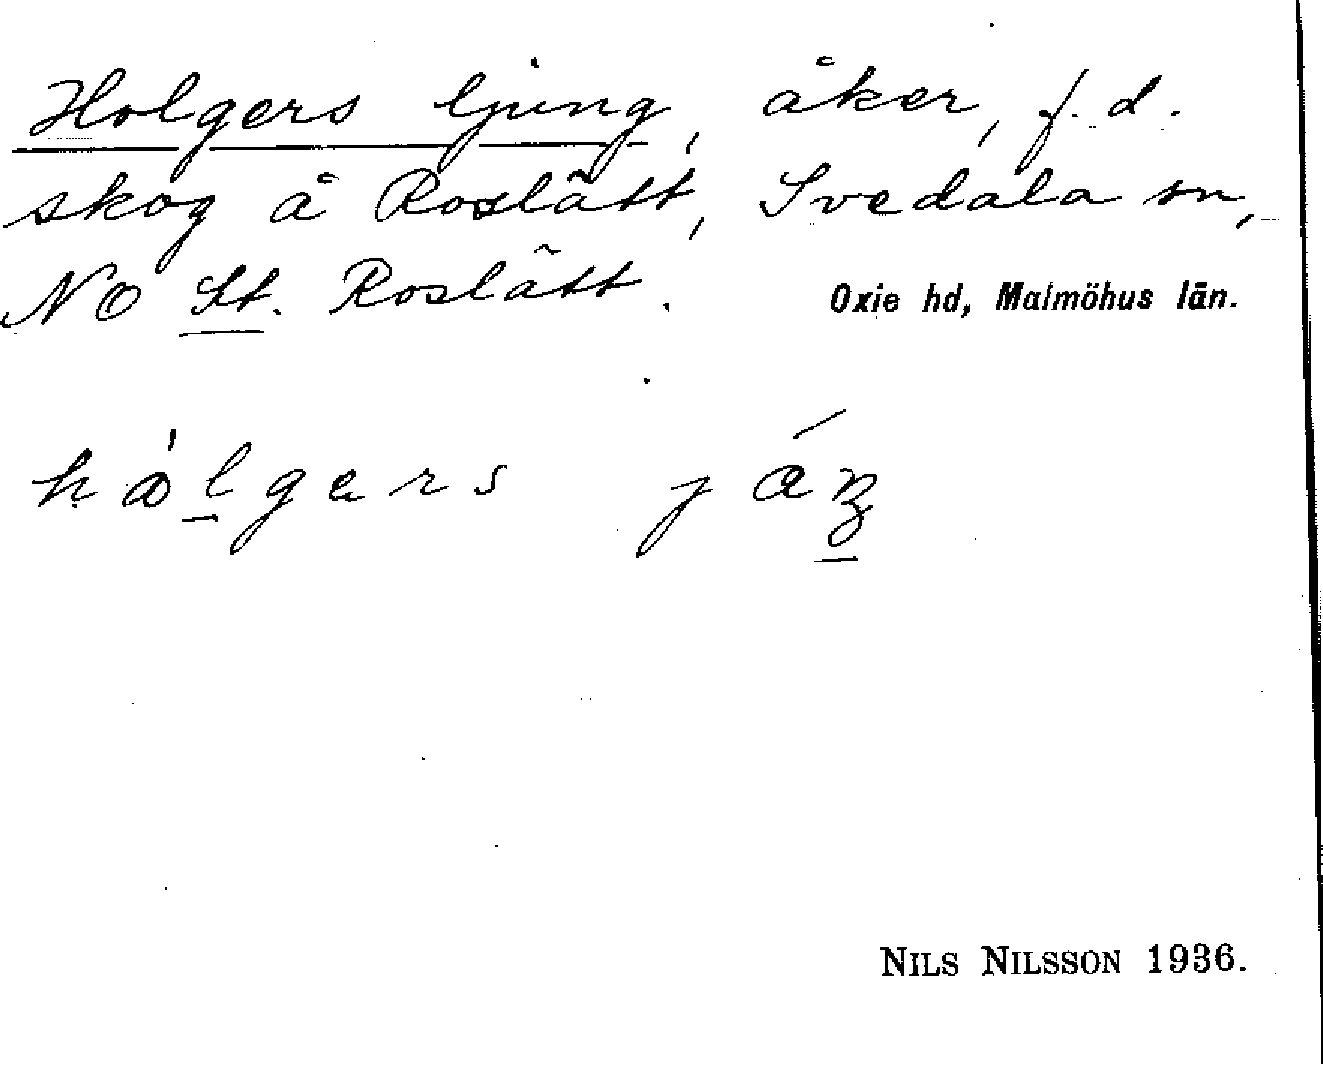 Holgers ljung, åker, f.d.
skog å Roslätt, Svedala sn,
NO St. Roslätt.
Oxie hd, Malmöhus län.
NILS NILSSON 1936.